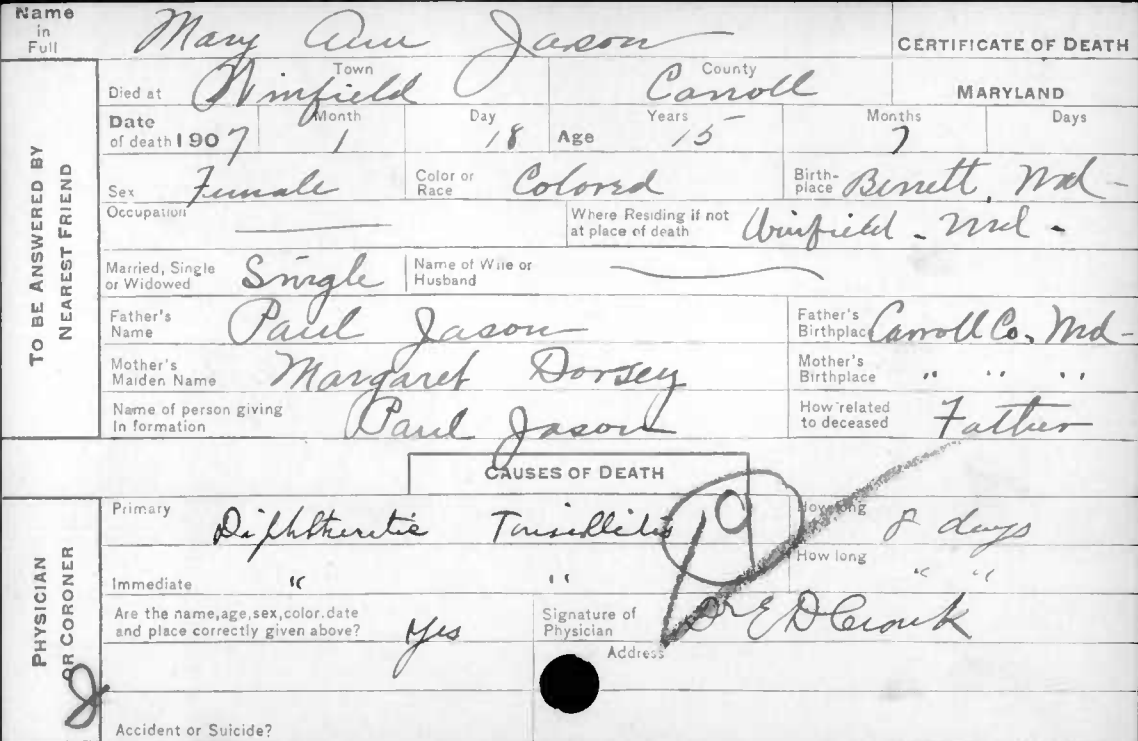 Name in Full Mary Ann Jason CERTIFICATE OF DEATH
Died at Town Winfield County Carroll MARYLAND
Date of death 1907 Month 1 Day 18 Age Years 15 Months 7 Days
Sex Female Color or Race Colored Birth-place Bennett, Md -
Occupation Where Residing if not at place of death Winfield - Md -
Married, Single or Widowed Single Name of Wife or Husband
Father's Name Paul Jason Father's Birthplace Carroll Co. Md -
Mother's Maiden Name Margaret Dorsey Mother's Birthplace " " "
Name of person giving In formation Paul Jason How related to deceased Father
TO BE ANSWERED BY NEAREST FRIEND
CAUSES OF DEATH
Primary Diphtheritic Tonsillitis 9 How long 8 days
Immediate " " How long " "
Are the name,age,sex,color.date and place correctly given above? Yes Signature of Physician Dr E D Cronk
Address
Accident or Suicide?
PHYSICIAN OR CORONER